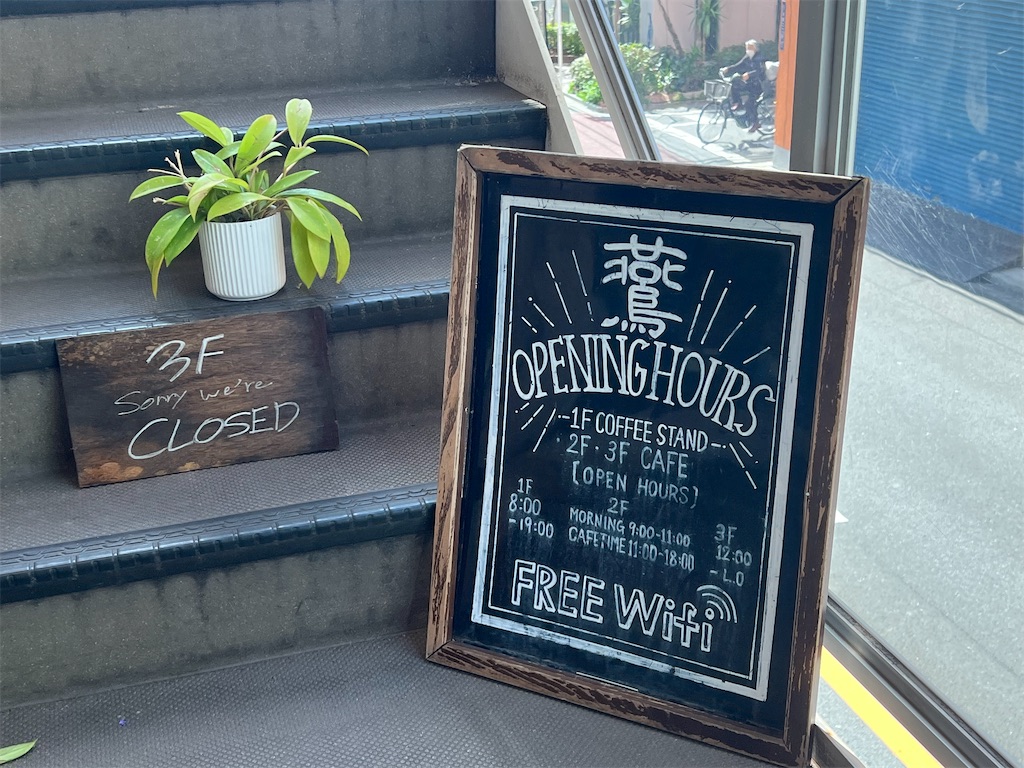 3F
Sorry we're
CLOSED
燕
OPENING HOURS
1F COFFEE STAND
2F・3F CAFE
[OPEN HOURS]
1F
8:00
-19:00
2F
MORNING 9:00-11:00
CAFETIME 11:00-18:00
3F
12:00
-L.O
FREE Wifi